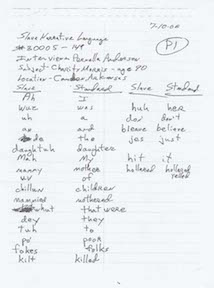 7-10-00
P1
Slave Narrative Language
Interview Pernella Anderson
Subject - Charity Morris - age 90
Location - Camden, Arkansas
Slave Standard Slave Standard
Ah I
wuz was huh her
uh a don' don't
an and bleave believe
de the jes just
daughtah daughter
Mah My hit it
mammy mother hollered
uv of
chillun children
mammied mothered
what that were
dey they
tuh to
po poor
fokes folks
kilt killed